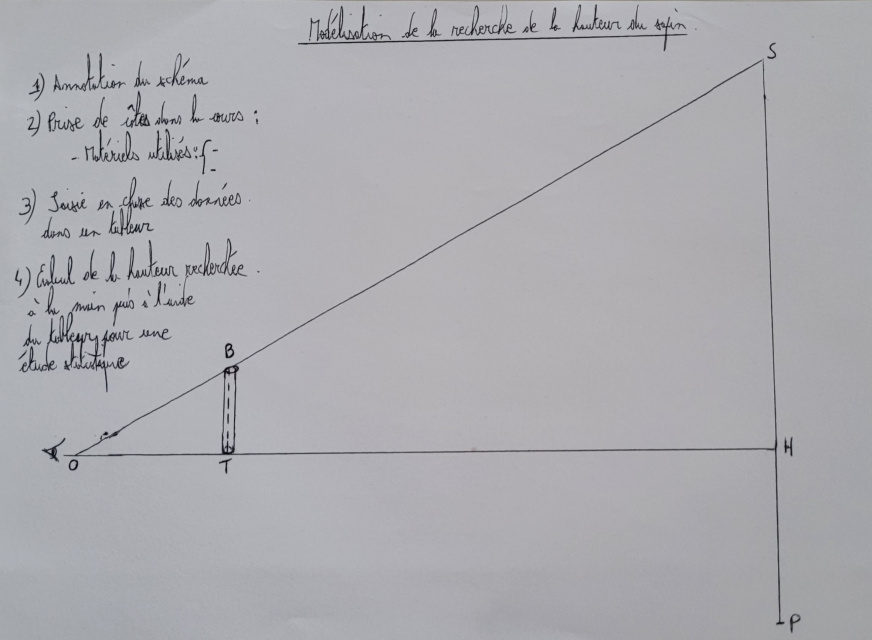 Modélisation de la recherche de la hauteur du sapin.
1) Annotation du schéma
2) Prise de côtes dans la cours :
- Matériels utilisés : { -
-
3) Saisie en classe des données
dans un tableur
4) Calcul de la hauteur recherchée
à la main puis à l'aide
du tableur pour une
étude statistique
S
B
O
T
H
P